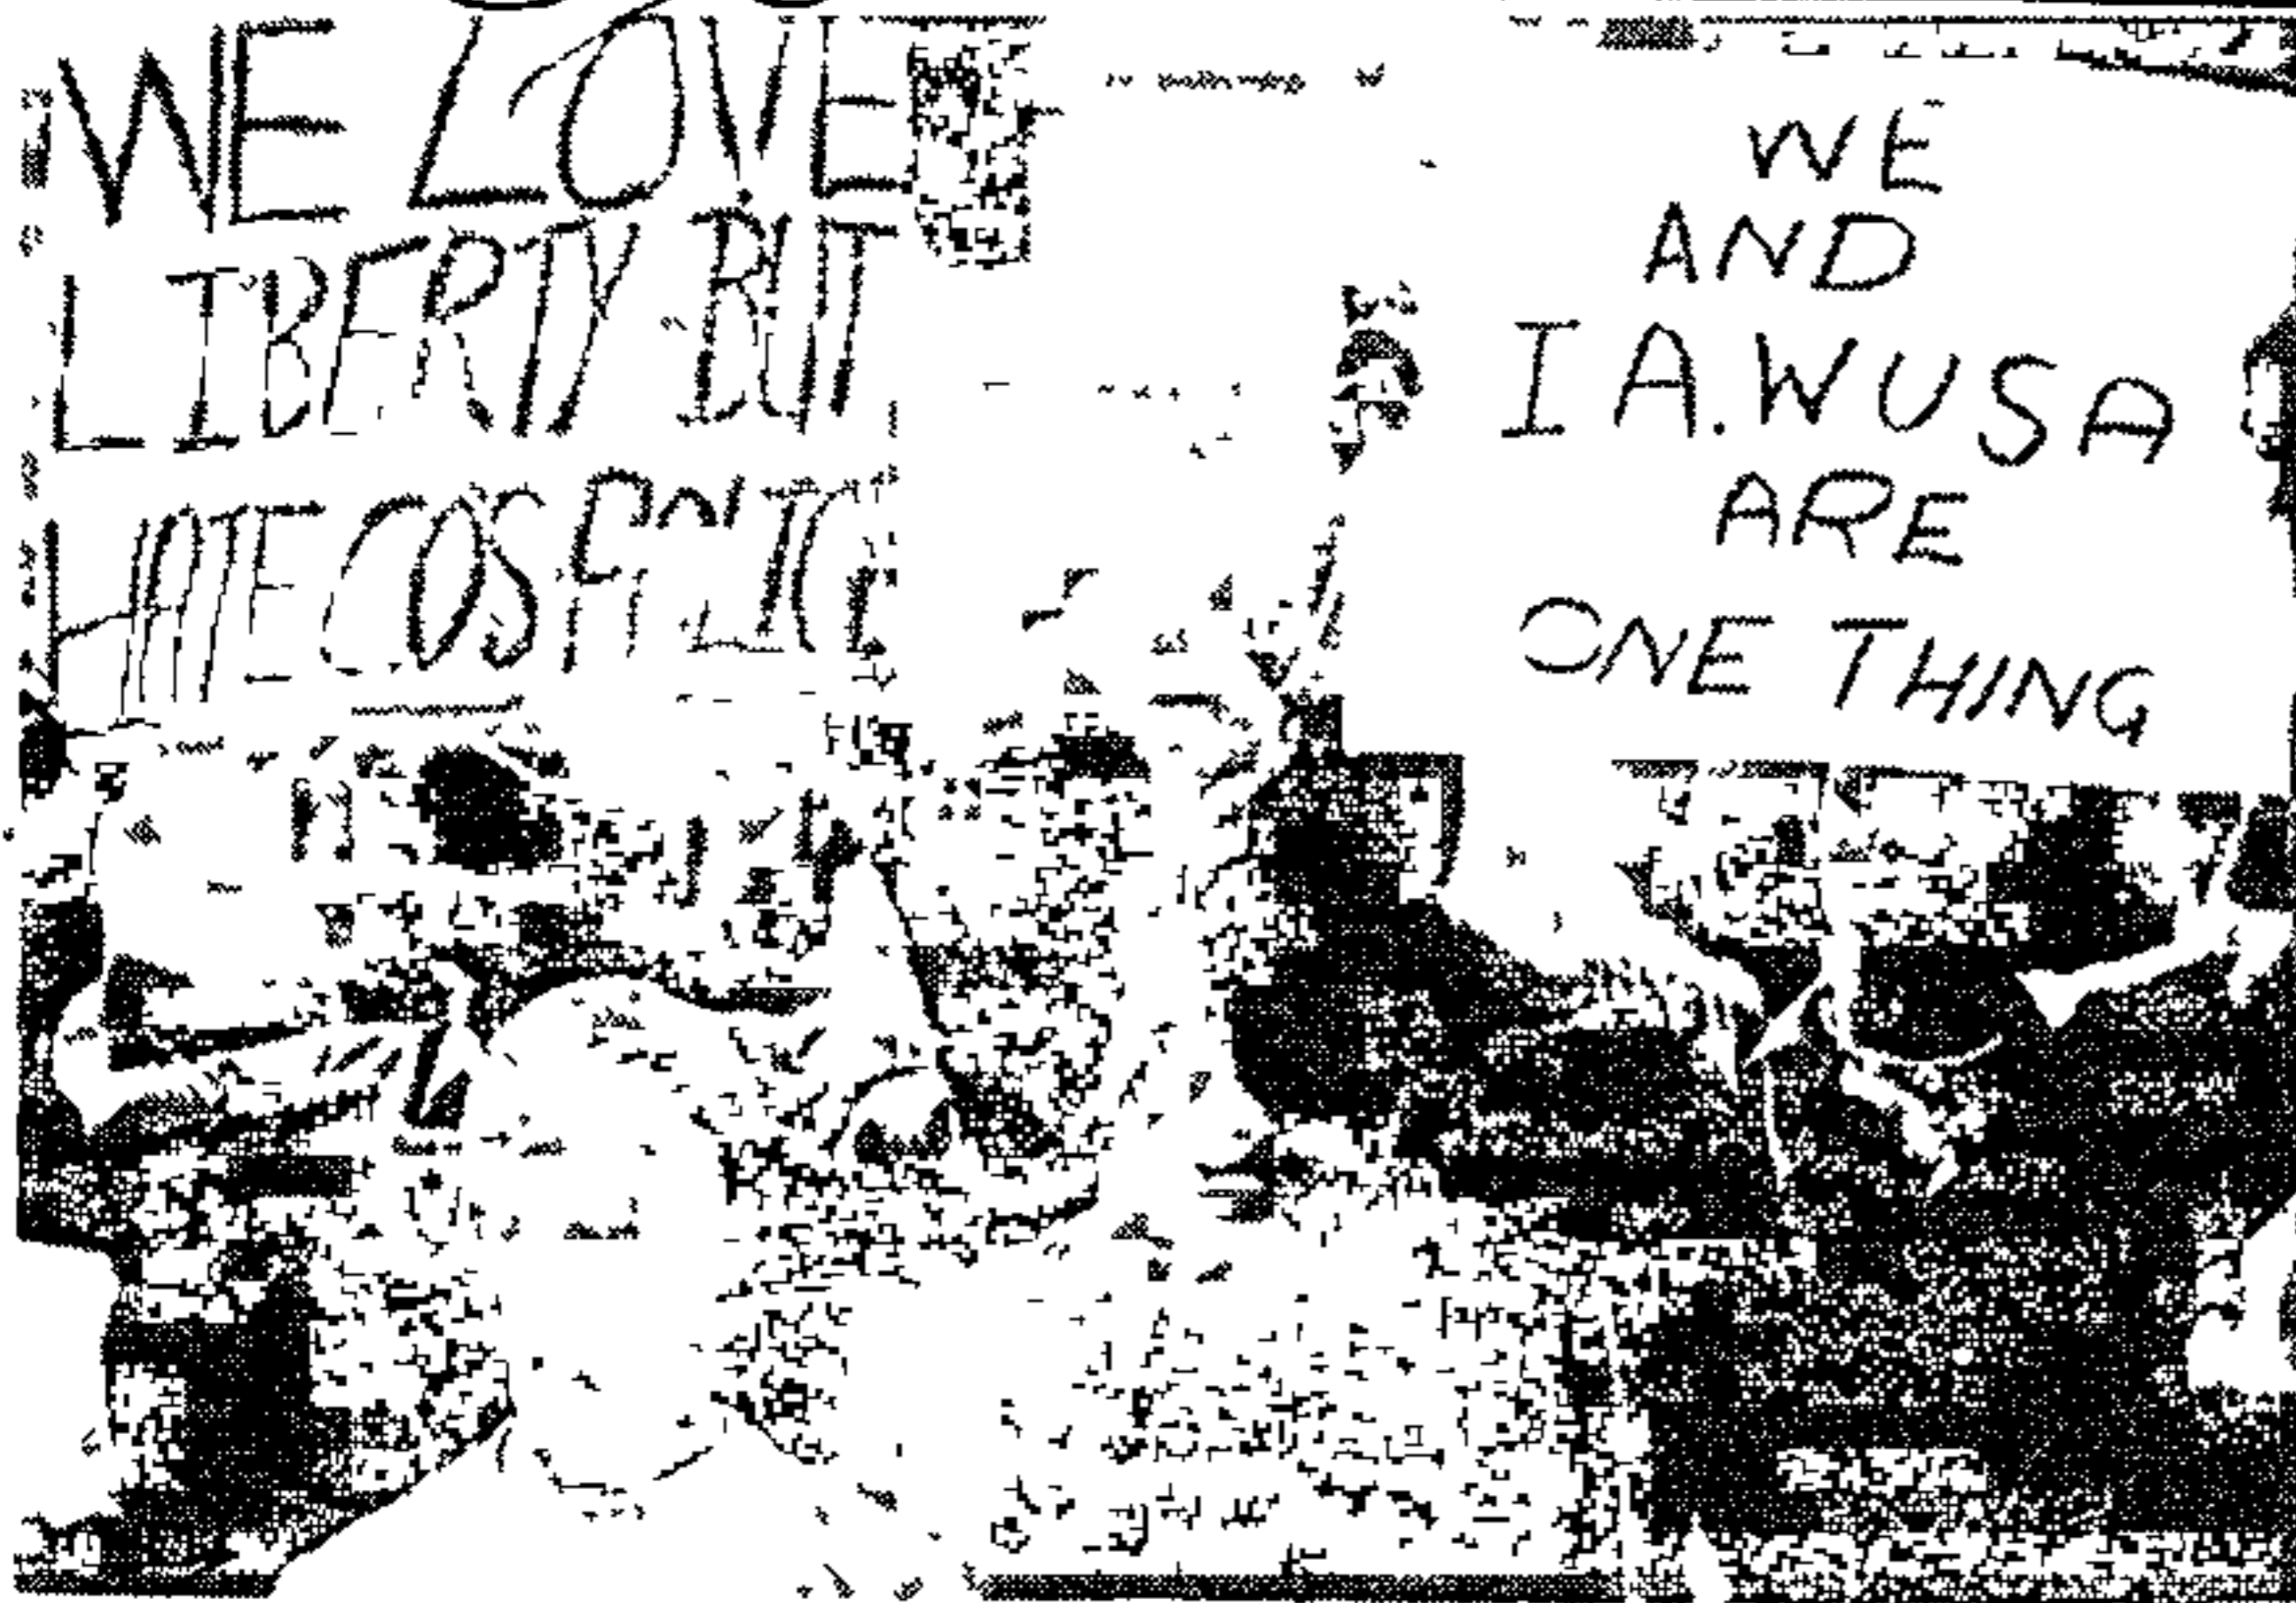 WE LOVE
LIBERTY BUT
HATE COSA
WE
AND
I A.WUSA
ARE
ONE THING